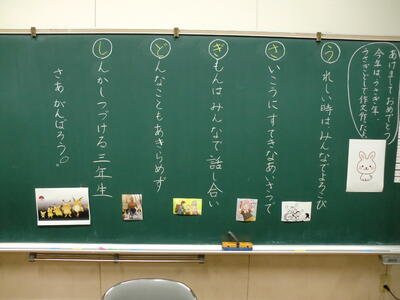 あけましておめでとう
今年は、うさぎ年
うさぎどしで作文作ったよ
うれしい時はみんなでよろこび
さいこうにすてきなあいさつで
ぎもんはみんなで話し合い
どんなこともあきらめず
しんかしつづける三年生
さあがんばろう!